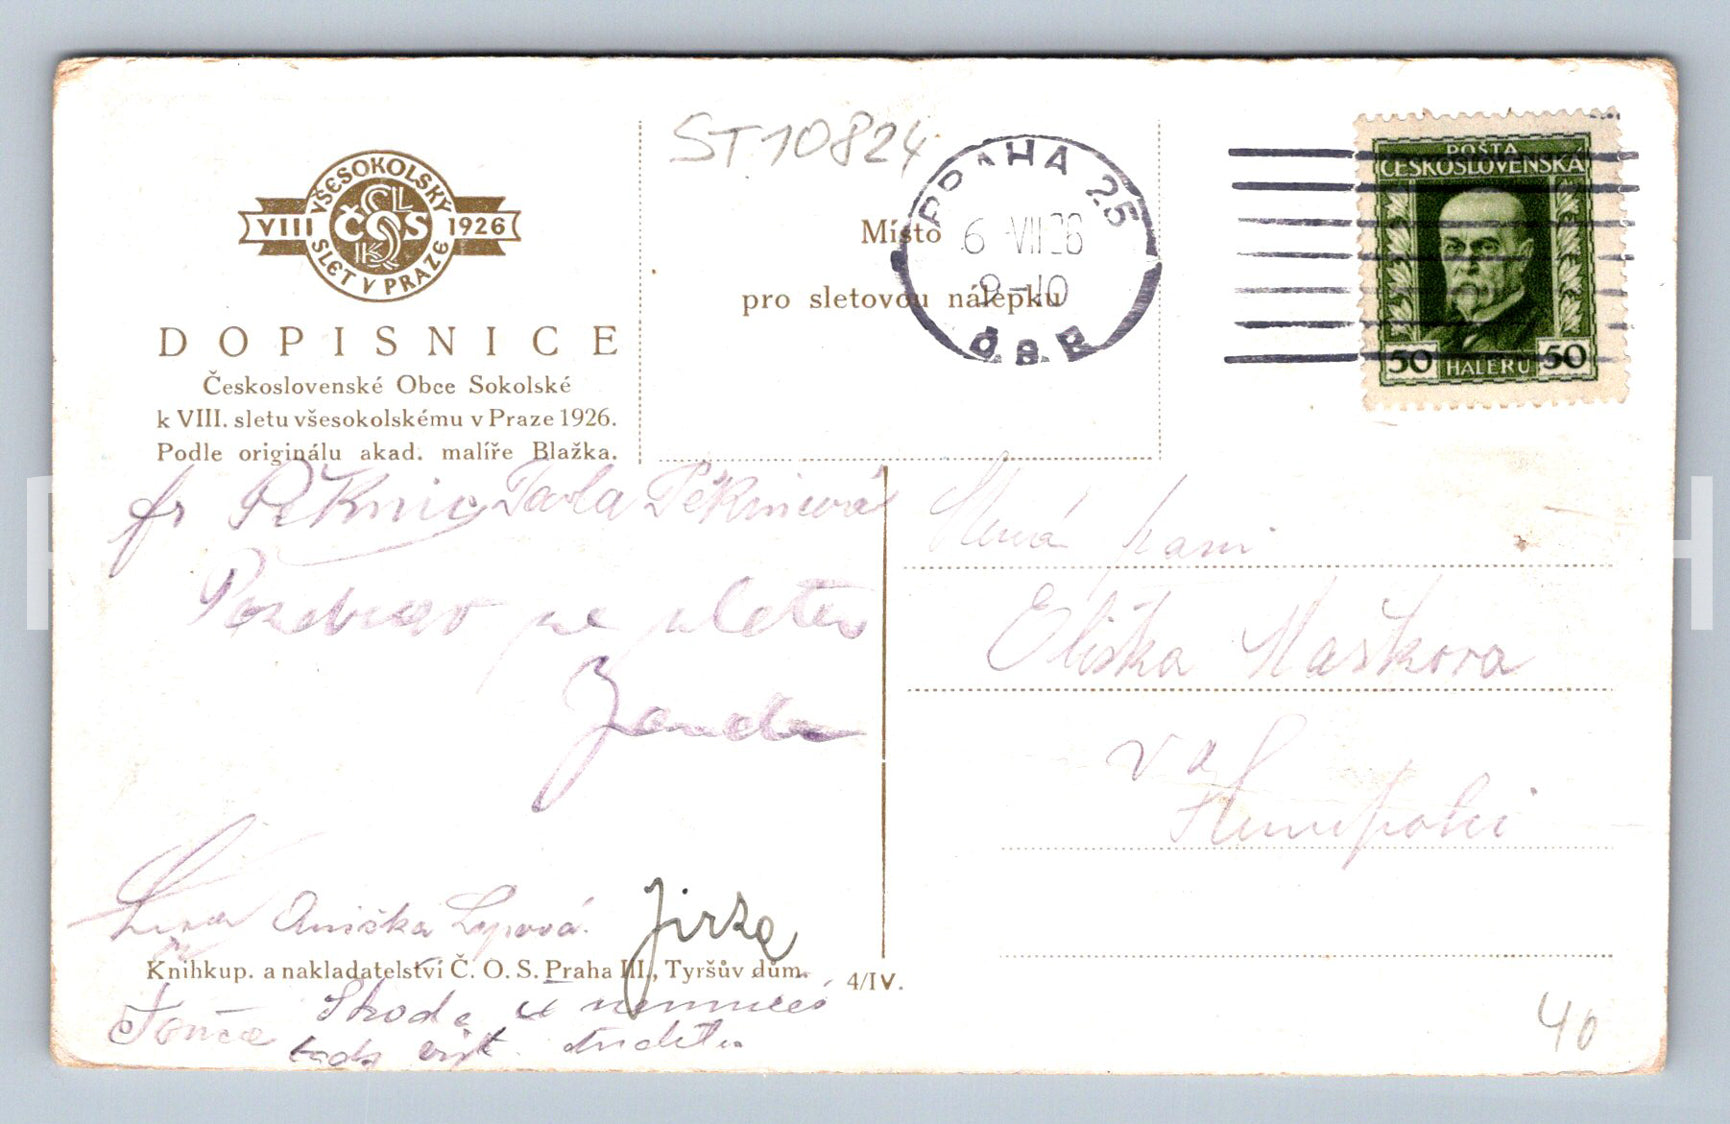 ST10824
VŠESOKOLSKÝ
VIII ČOS 1926
SLET V PRAZE
DOPISNICE
Československé Obce Sokolské
k VIII. sletu všesokolskému v Praze 1926.
Podle originálu akad. malíře Blažka.
Místo
pro sletovou nálepku
PRAHA 25
6 VII 26
9-10
POŠTA
ČESKOSLOVENSKÁ
50 HALÉŘŮ 50
fr Pěknic Pavla Pěknicová
Pozdrav ze sletu
Janda
paní
Eliška Maškova
v
Humpolci
Aniška Lypová.
Jirka
Knihkup. a nakladatelství Č. O. S. Praha III., Tyršův dům.
4/IV.
Tonča
Škoda
40